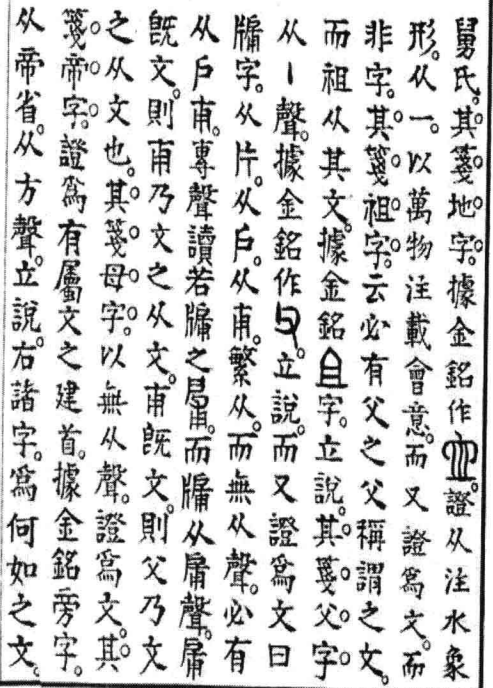 舅氏。其箋地字。據金銘作。證从注水象
形。从一。以萬物注載會意。而又證爲文。而
非字。其箋祖字。云必有父之父稱謂之文。
而祖从其文。據金銘字。立說。其箋父字
从丨聲。據金銘作。立說。而又證爲文曰
牖字。从片。从戶。从甫。繁从。而無从聲。必有
从戶甫。專聲讀若牖之。而牖从聲。
旣文。則甫乃文之从文。甫旣文。則父乃文
之从文也。其箋母字。以無从聲。證爲文。其
箋帝字。證爲有屬文之建首。據金銘旁字。
从帝省。从方聲。立說。右諸字。爲何如之文。